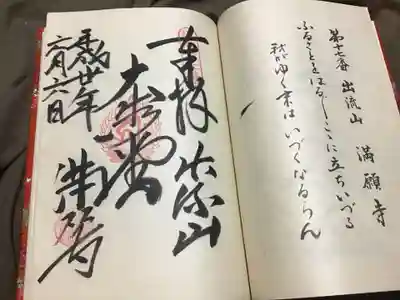 第十七番 出流山 満願寺
ふるさとをはるばるここに立ちいづる
我がゆく末はいづくなるらん
奉拝 出流山
大御堂
平成卅年 満願寺
六月六日